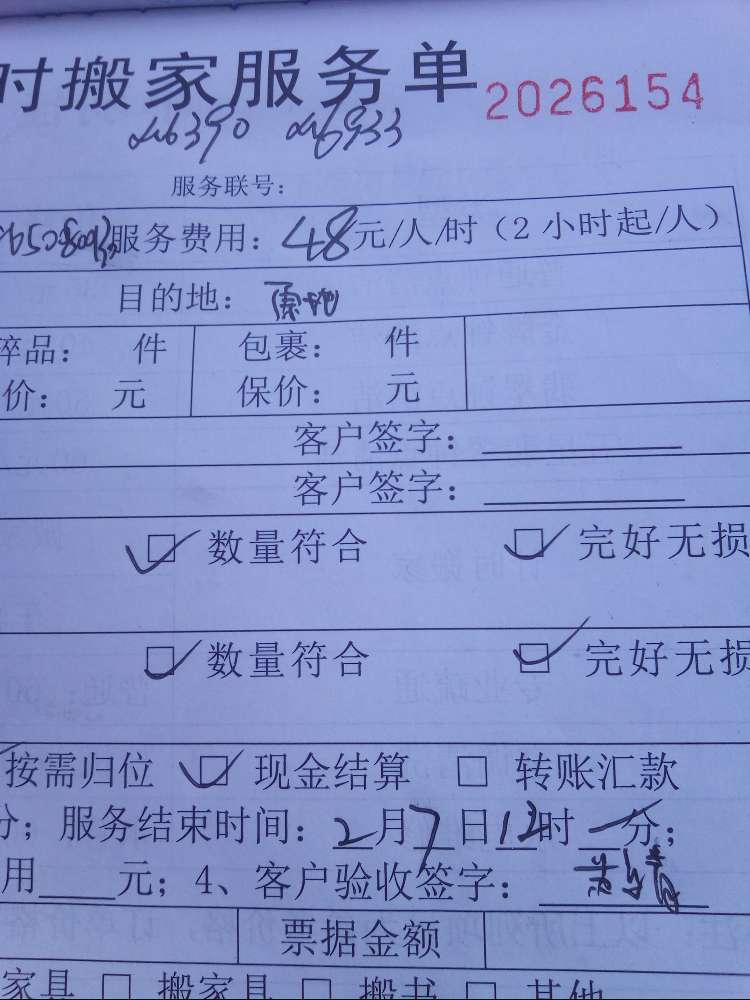 时搬家服务单 2026154
服务联号：
服务费用：48元/人/时（2小时起/人）
目的地：原地
碎品： 件 包裹： 件
价： 元 保价： 元
客户签字：
客户签字：
数量符合 完好无损
数量符合 完好无损
按需归位 现金结算 转账汇款
分；服务结束时间：2月7日12时 分；
用 元；4、客户验收签字：
票据金额
家具 搬家具 搬书 其他